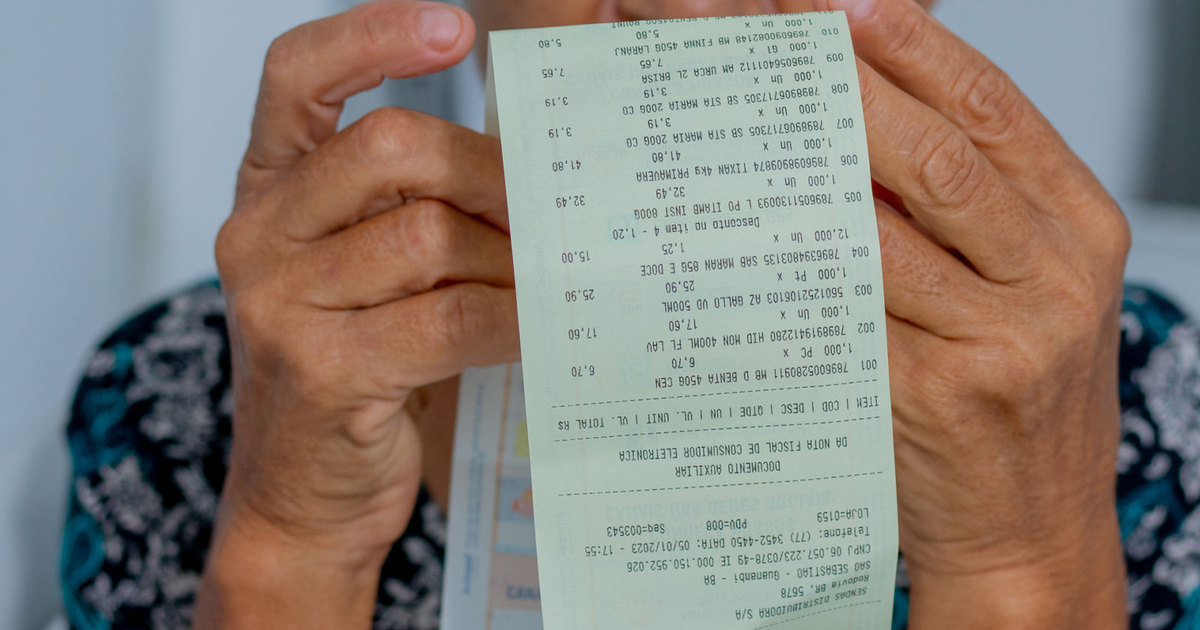 SENDAS DISTRIBUIDORA S/A
Rodovia BR, 5678
SAO SEBASTIAO - Guanambi - BA
CNPJ 06.057.223/0378-49 IE 000.150.952.026
Telefone: (77) 3452-4450 DATA: 05/01/2023 - 17:55
LOJA=0159 PDV=008 Seq=003543
DOCUMENTO AUXILIAR
DA NOTA FISCAL DE CONSUMIDOR ELETRONICA
ITEM | COD | DESC | QTDE | UN | VL. UNIT | VL. TOTAL R$
001 7896005280911 MB D BENTA 450G CEN
1,000 PC x 6,70 6,70
002 7898919412280 AM HID MON 400ML FL LAV
1,000 Un x 17,60 17,60
003 5601252106103 AZ GALLO VD 500ML
1,000 Pt x 25,90 25,90
004 7896394803135 SAB MARAN 85G E DOCE
12,000 Un x 1,25 15,00
Desconto no item 4 - 1,20
005 7896051130093 L PO ITAMB INST 800G
1,000 Un x 32,49 32,49
006 7896098909874 TIXAN 4kg PRIMAVERA
1,000 Un x 41,80 41,80
007 7898906717305 SB STA MARIA 200G CO
1,000 Un x 3,19 3,19
008 7898906717305 SB STA MARIA 200G CO
1,000 Un x 3,19 3,19
009 7896056401112 AM URCA 2L BRISA
1,000 Gl x 7,65 7,65
010 7896090082148 MB FINNA 450G LARANJ
1,000 Un x 5,80 5,80